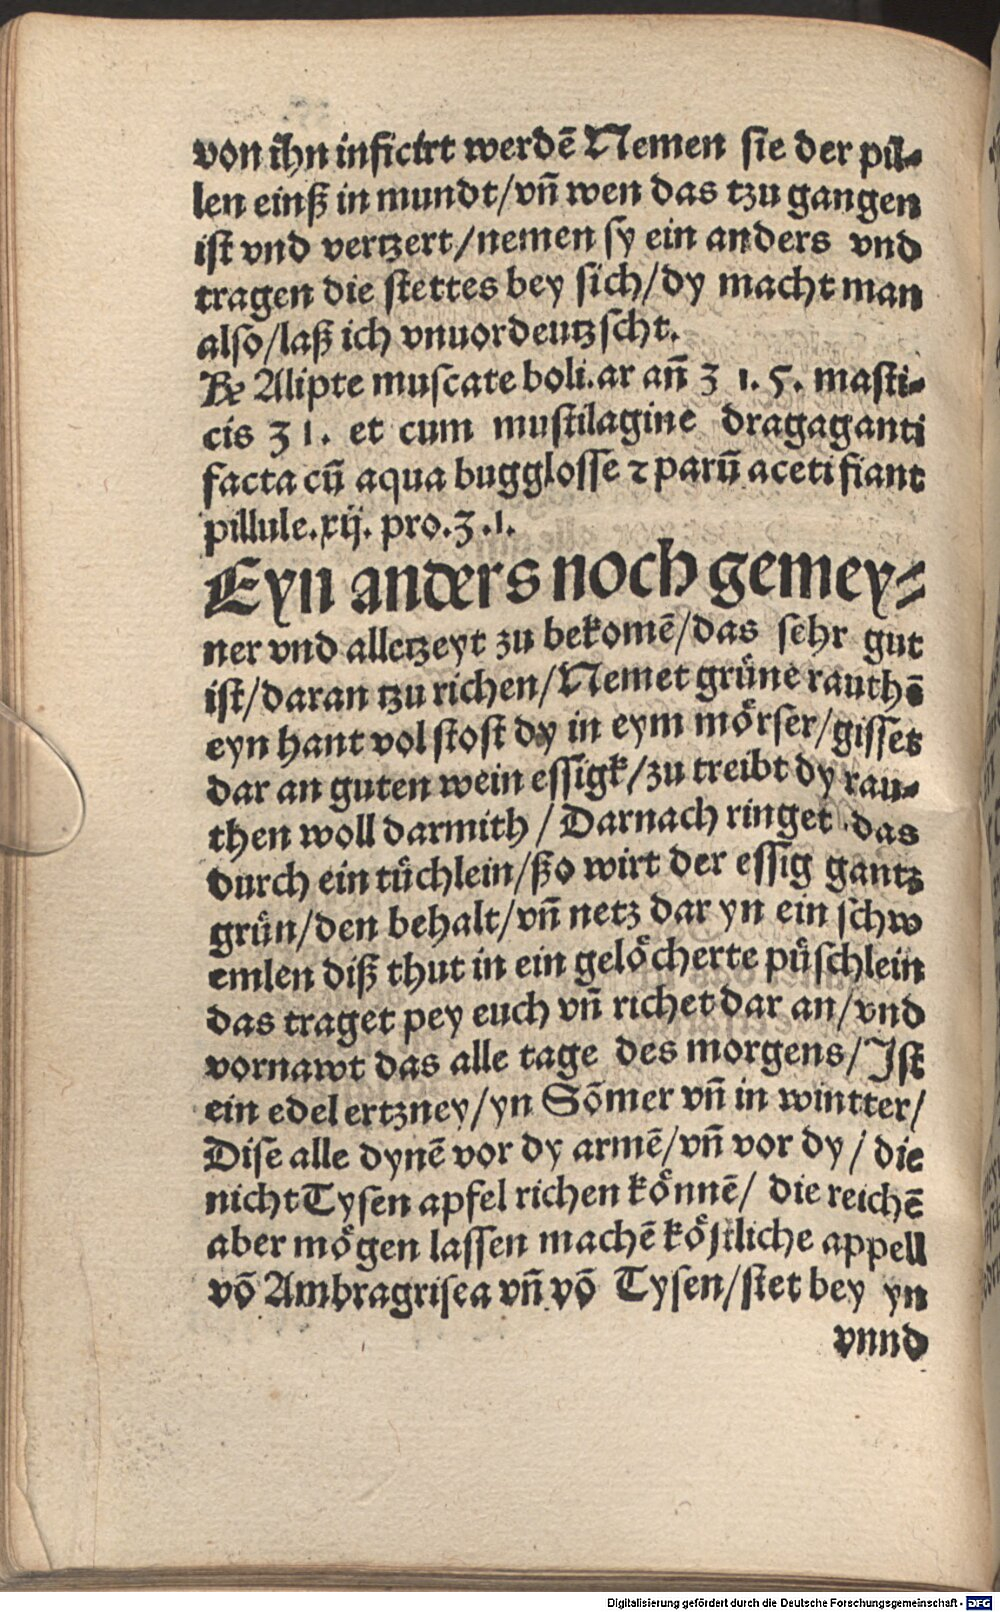 von ihn inficirt werdē Nemen sie der pil-
len einß in mundt/vñ wen das tzu gangen
ist vnd vertzert/nemen sy ein anders vnd
tragen die stettes bey sich/dy macht man
also/laß ich vnuordeutzscht.
℞ Alipte muscate boli.ar añ ʒ 1. 5. masti-
cis ʒ 1. et cum mustilagine dragaganti
facta cū aqua bugglosse ⁊ parū aceti fiant
pillule.xij. pro.ʒ.1.
Eyn anders noch gemey-
ner vnd alletzeyt zu bekomē/das sehr gut
ist/daran tzu richen/Nemet grüne rauthē
eyn hant vol stost dy in eym mörser/gisset
dar an guten wein essigk/zu treibt dy rau-
then woll darmith / Darnach ringet das
durch ein tüchlein/ßo wirt der essig gantz
grün/den behalt/vñ netz dar yn ein schw
emlen diß thut in ein gelöcherte püschlein
das traget pey euch vñ richet dar an/vnd
vornawt das alle tage des morgens/Ist
ein edel ertzney/yn Sōmer vñ in wintter/
Dise alle dynē vor dy armē/vñ vor dy/ die
nicht Tysen apfel richen könnē/ die reichē
aber mögen lassen machē köstliche appell
vō Ambragrisea vñ vō Tysen/stet bey yn
vnnd
Digitalisierung gefördert durch die Deutsche Forschungsgemeinschaft - DFG